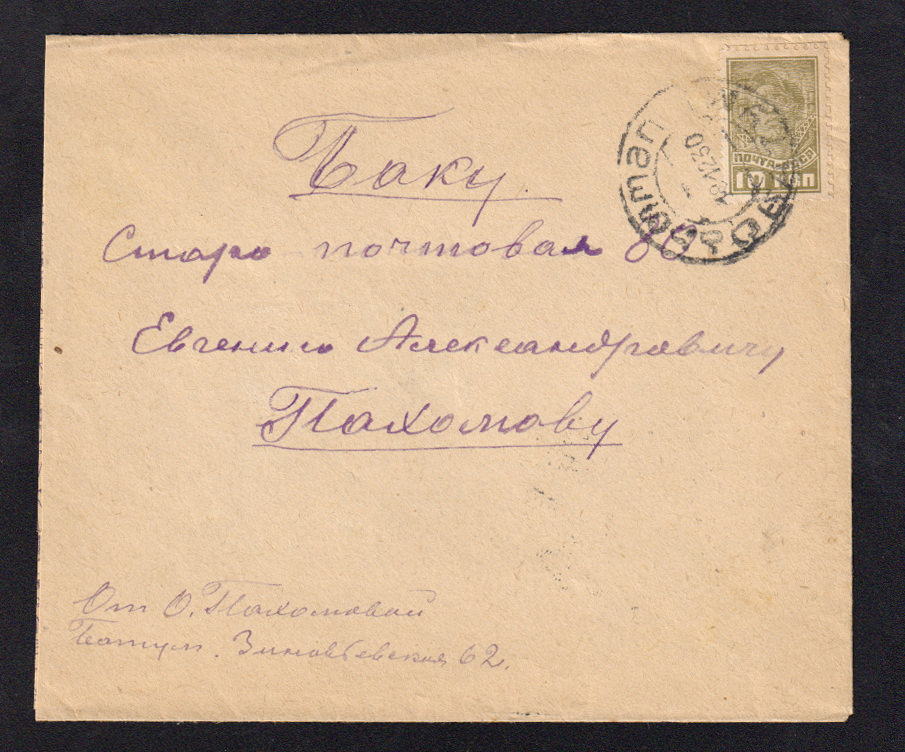 Баку
Старо почтовая 89
Евгению Александровичу
Пахомову
От О. Пахомовой
Батум. Зиновьевская 62.
ПОЧТА СССР
10 КОП